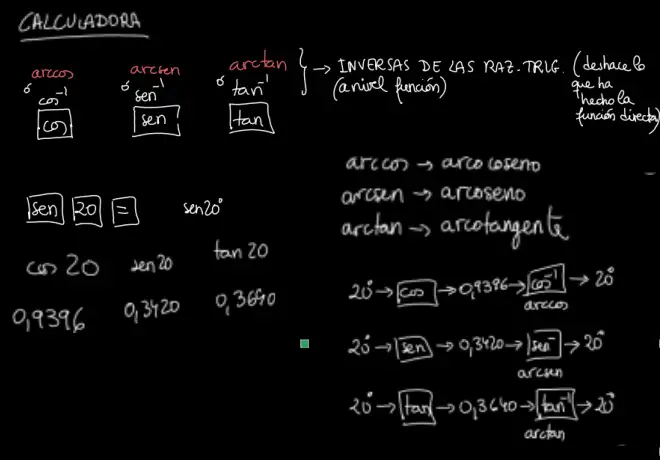 CALCULADORA
arccos arcsen arctan
ó cos⁻¹ ó sen⁻¹ ó tan⁻¹
cos sen tan
→ INVERSAS DE LAS RAZ. TRIG. (deshace lo
(a nivel función) que ha
hecho la
función directa)
arccos → arco coseno
arcsen → arcoseno
arctan → arcotangente
sen 20 = sen20°
cos 20 sen20 tan 20
0,9396 0,3420 0,3640
20° → cos → 0,9396 → cos⁻¹ → 20°
arccos
20° → sen → 0,3420 → sen⁻ → 20°
arcsen
20° → tan → 0,3640 → tan⁻¹ → 20°
arctan